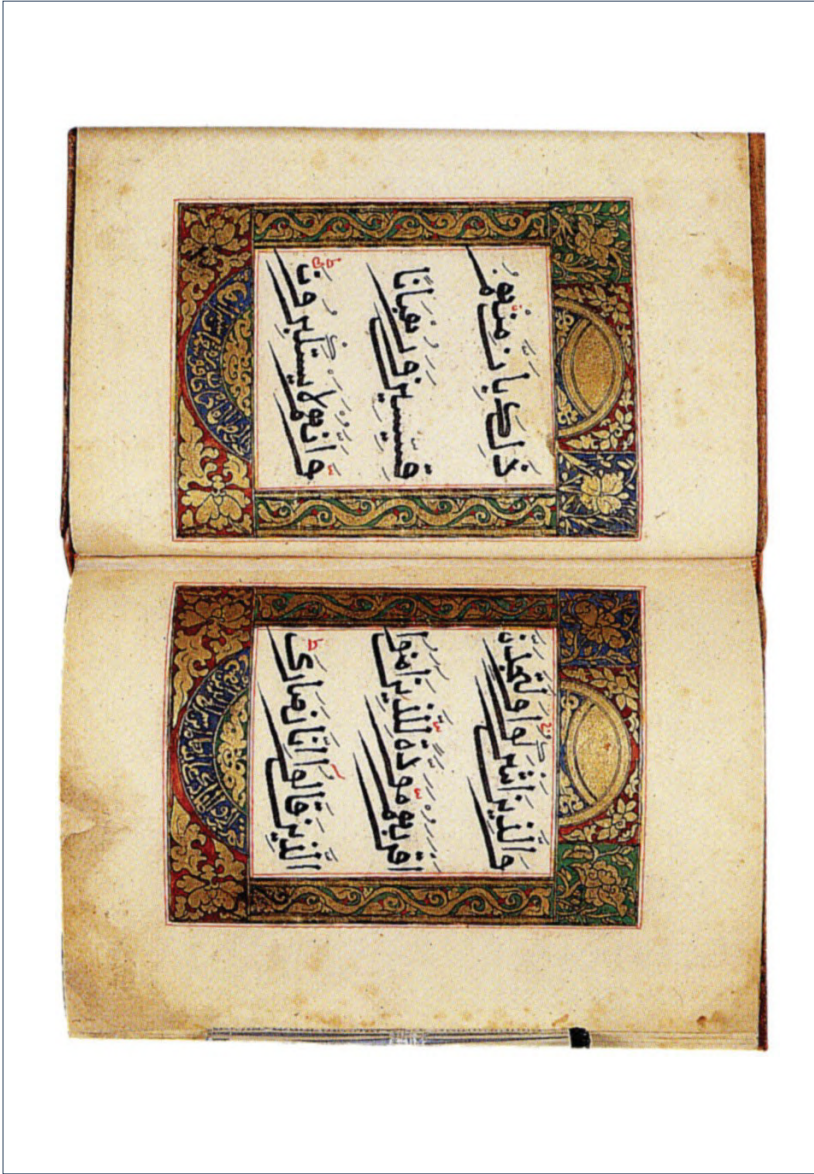 وَالَّذِينَ اَشْرَكُوا وَلَتَجِدَنَّ
اَقْرَبَهُمْ مَوَدَّةً لِلَّذِينَ اٰمَنُوا
الَّذِينَ قَالُوا اِنَّا نَصَارَى
ذَلِكَ بِاَنَّ مِنْهُمْ
قِسِّيسِينَ وَرُهْبَانًا
وَاَنَّهُمْ لَا يَسْتَكْبِرُونَ